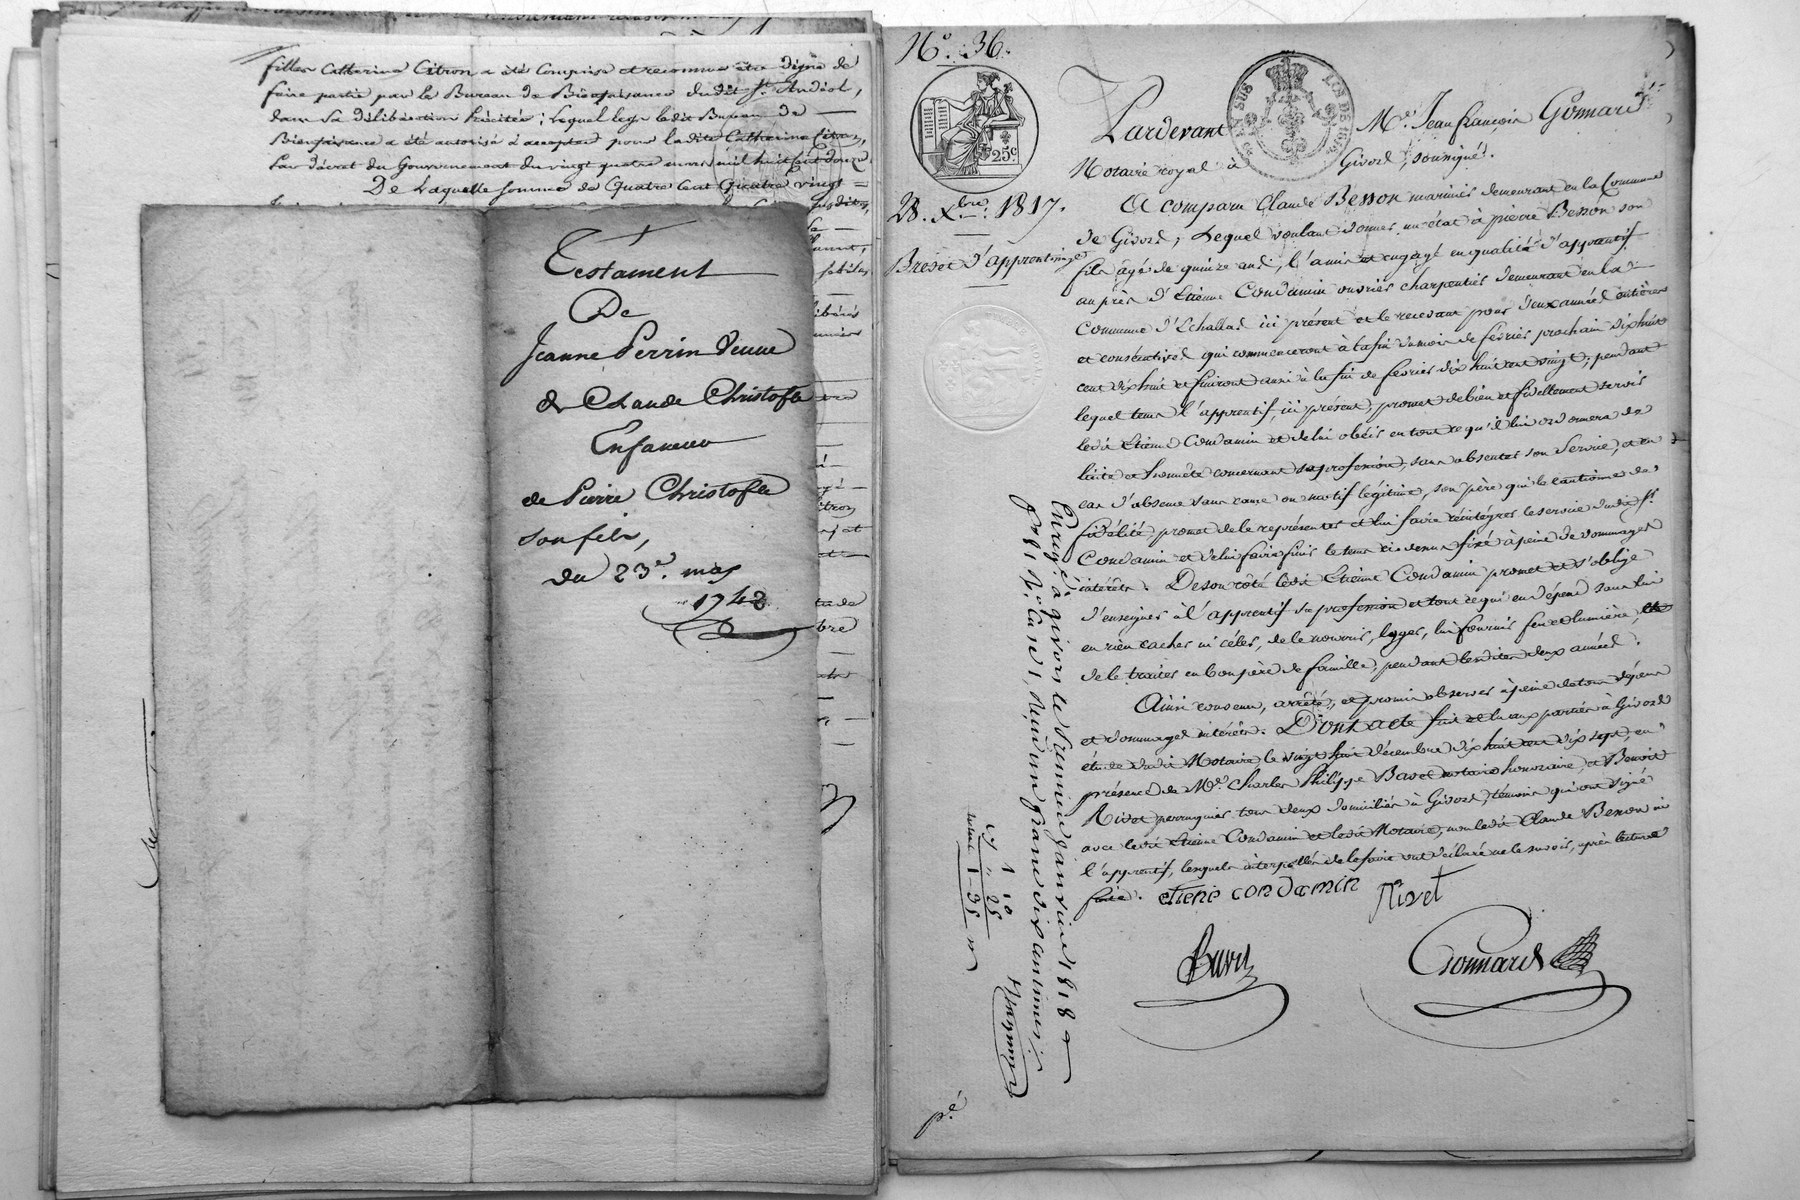 filles Catherine Citron a été Comprise et reconnue être digne de
faire partie par le Bureau de Bienfaisance dudit St. Andéol,
dans sa délibération précitée; lequel legs ledit Bureau de
Bienfaisance a été autorisé à accepter pour ladite Catherine Citron,
par décret du Gouvernement du vingt quatre mil huit cent douze
De laquelle somme de Quatre Cent Quatre vingt
Testament
De
Jeanne Perrin veuve
de Claude Christofle
En faveur
de Pierre Christofle
son fils,
du 23e. may
1748
No. 36.
25c
28. Xbre. 1817.
Brevet d'apprentissage
Pardevant Me. Jean françois Gonnard
Notaire royal à Givord, soussigné.
A comparu Claude Besson marinier demeurant en la Commune
de Givord; Lequel voulant donner un état à pierre Besson son
fils âgé de quinze ans, l'a mis et engagé en qualité d'apprentif
auprès d'Etienne Condamin ouvrier charpentier demeurant en la
Commune d'Echallas ici présent et le recevant pour deux années entières
et consécutives qui commenceront à la fin du mois de février prochain dix huit
cent dix huit et finiront aussi à la fin de février dix huit cent vingt; pendant
lequel tems l'apprentif, ici présent, promet de bien et fidellement servir
ledit Etienne Condamin et de lui obéir en tout ce qu'il lui ordonnera de
licite et honnête concernant sa profession, sans absenter son service, et en
cas d'absence sans cause ou motif légitime, son père qui le cautionne de
fidélité, promet de le représenter et lui faire réintégrer le service dudit Sr.
Condamin et de lui faire finir le tems ci-dessus fixé à peine de dommages
intérêts. De son côté ledit Etienne Condamin promet et s'oblige
d'enseigner à l'apprentif sa profession et tout ce qui en dépend sans lui
en rien cacher ni céler, de le nourrir, loger, lui fournir feu et lumière, et
de le traiter en bon père de famille, pendant lesdites deux années.
Ainsi convenu, arrêté, et promis observer à peine de tous dépens
et dommages intérêts. Dont acte fait et lu aux parties à Givord
étude dudit Notaire le vingt huit décembre dix huit cent dix sept, en
présence de Me. Charles Philippe Bavet notaire honoraire, et Benoit
Rivet perruquier tous deux domiciliés à Givord, témoins qui ont signé
avec ledit Etienne Condamin et ledit Notaire, non ledit Claude Besson ni
l'apprentif, lesquels interpellés de le faire ont déclaré ne le savoir, après lecture
faite. etiene condamin Rivet
Gonnard
Enregé. à givors le premier janvier 1818
Reçu un franc dix centimes
1 10
25
1-35